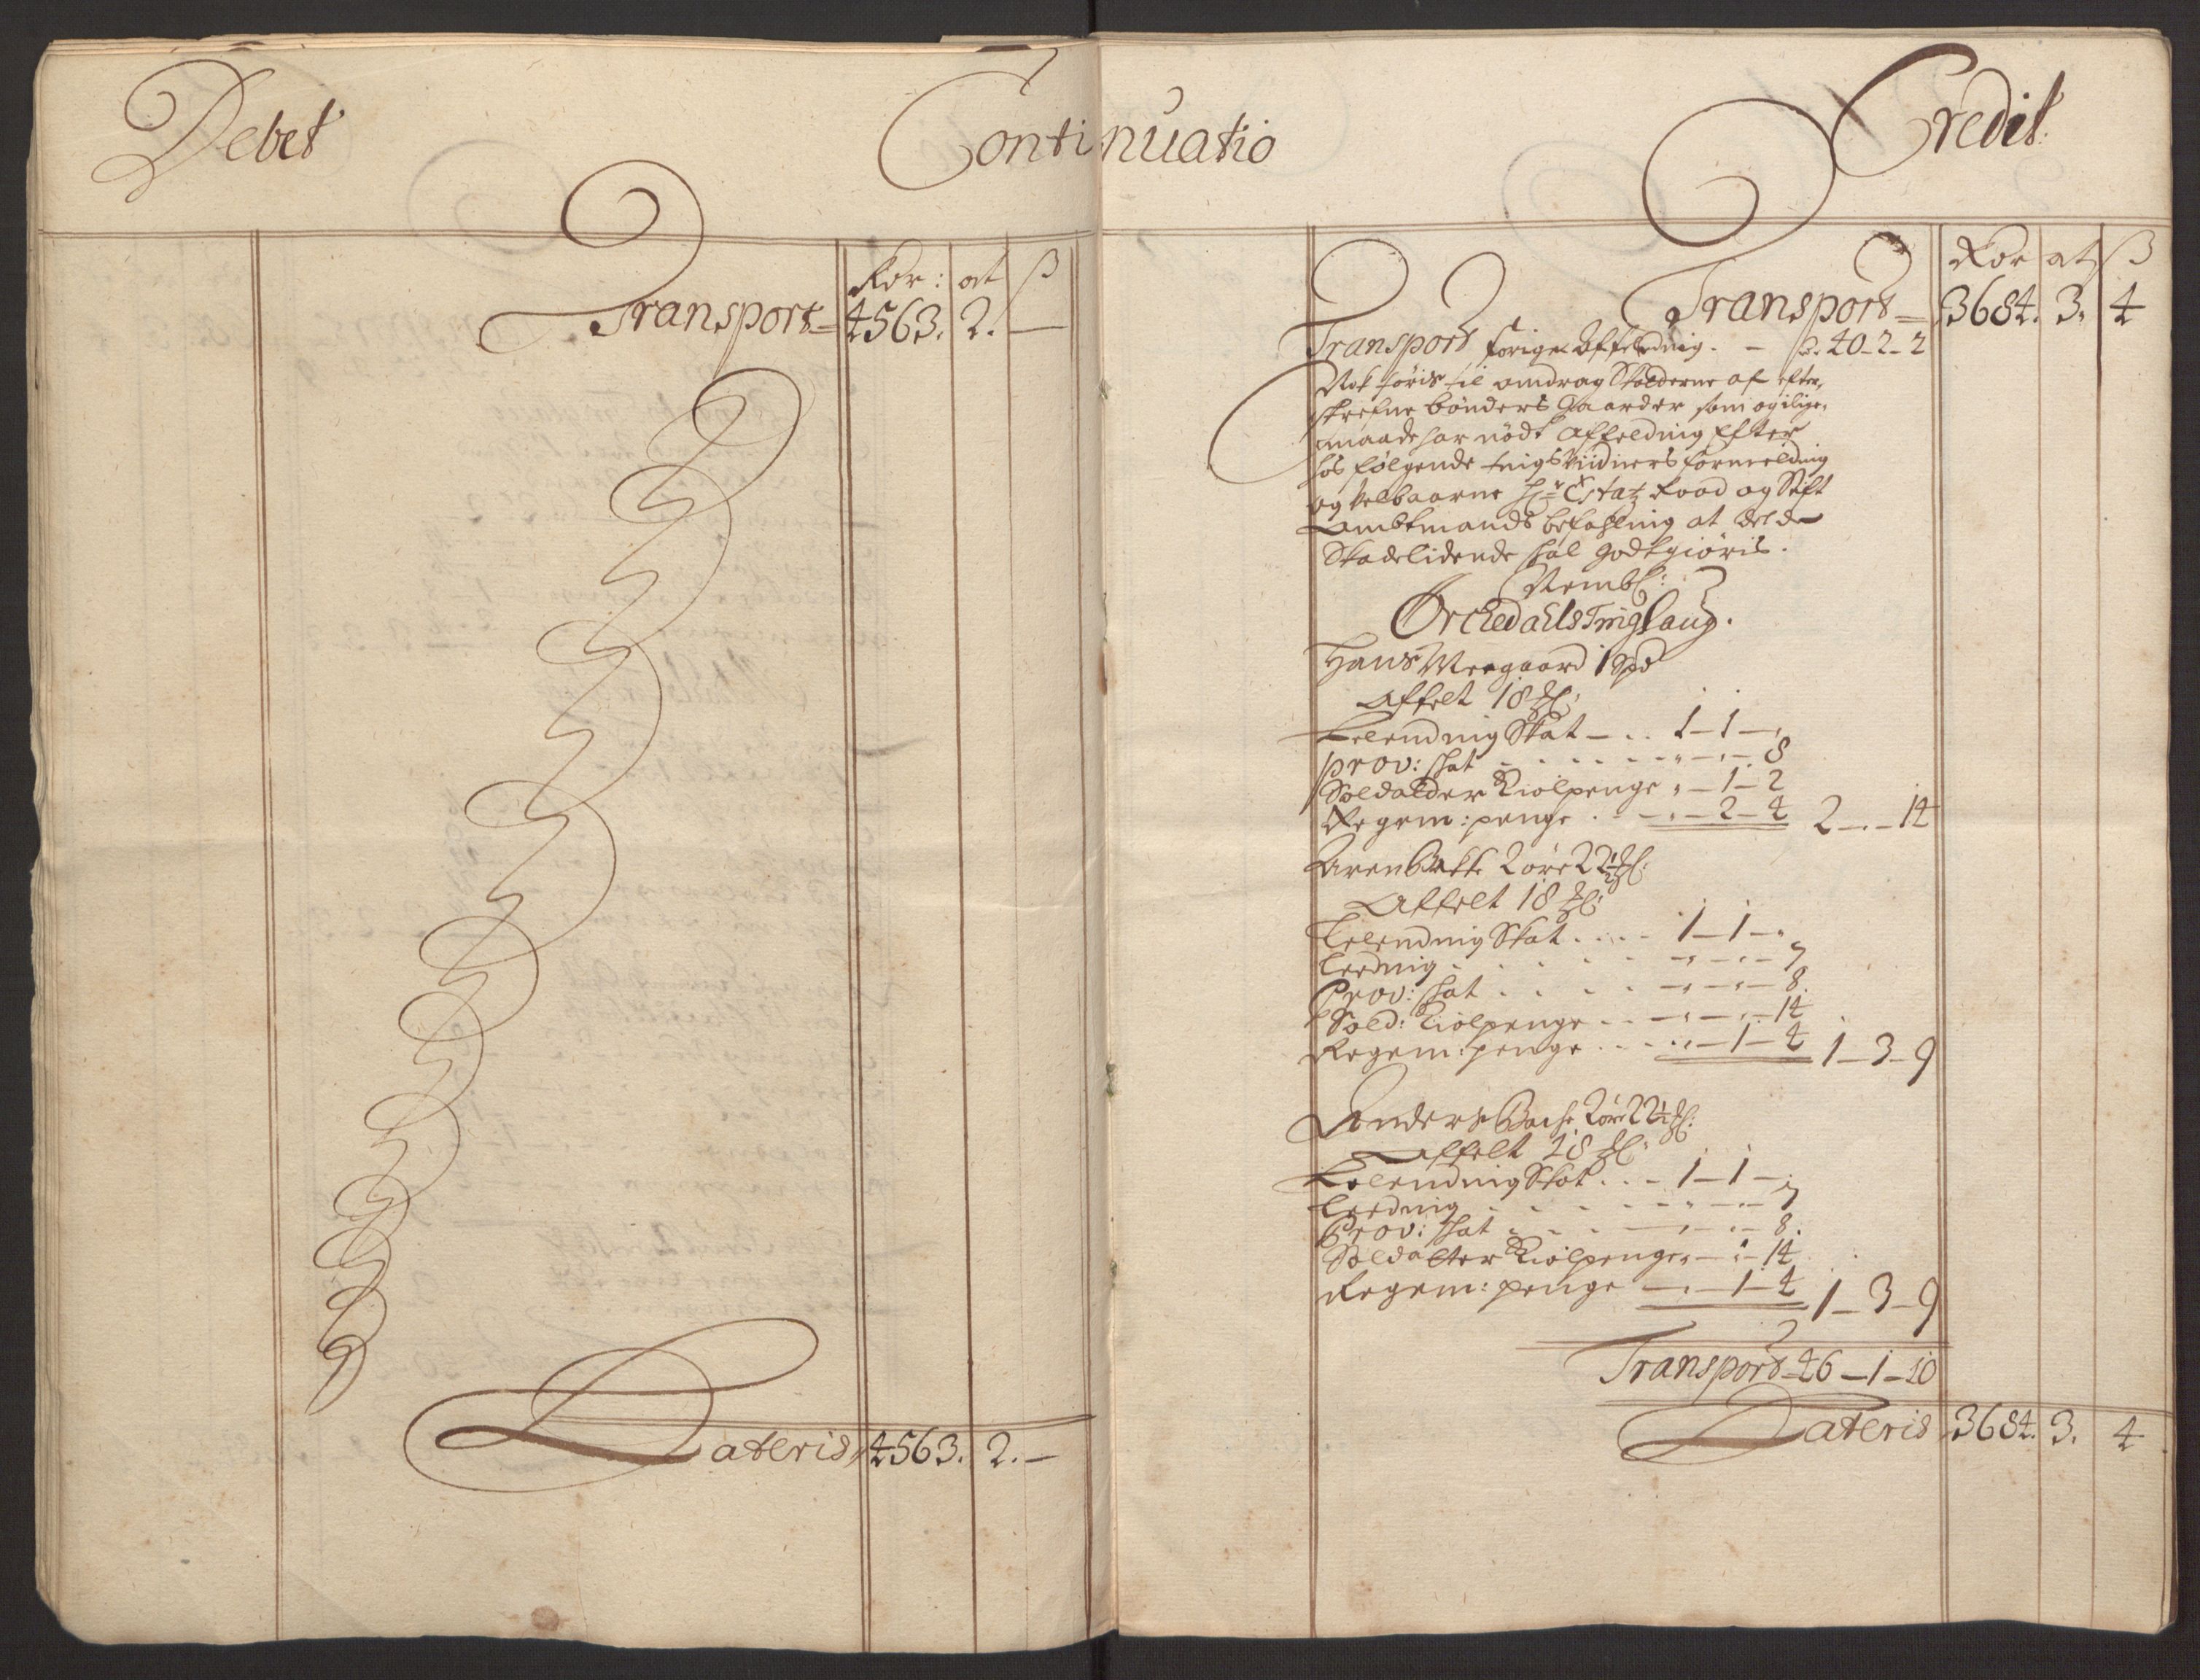 Debet
Continuatio
Credit.
Rdr: ort ß
Transport = 4563. 2. —
Lateris 4563. 2. —
Rdr ort ß
Transport = 3684. 3. 4
Transport forige Affelding. — 40-2-2
Nok føris til omdrag Skatterne af efter,
skrefne bønders Gaarder som og i lige,
maade har nødt Affelding Efter
hos følgende tings Vidners formelding
og Velbaarne Hr: Estatz Raad og Stift
Ambtmands befahling at det de
Skadelidende skal godtgiøris.
Nembl:
Orchedahls Tinglaug.
Hans Megaard 1 Spd
Affelt 18
Leilendning Skat — .. 1—1—"
prov: skat . . . . . "—"—8
Soldatter Kiolpenge "—1—2
Regem: penge . — "—2—4 2—"—14
Bakke 2 øre 22½
Affelt 18
Leilendning Skat . . . . 1—1—"
Leeding . . . . . "—"—7
Prov: skat . . . . "—"—8.
Sold: Kiolpenge . . "—"—14
Regem: penge . . . "—1—4 1—3—9
Anders Bache 2 øre 22½
Affelt 18
Leilendning Skat . . . 1—1—"
Leeding . . . . . "—"—7
Prov: skat . . . — "—"—8.
Soldatter Kiolpenge "—"—14
Regem: penge — "—1—4 1—3—9
Transport = 46—1—10
Lateris 3684. 3. 4